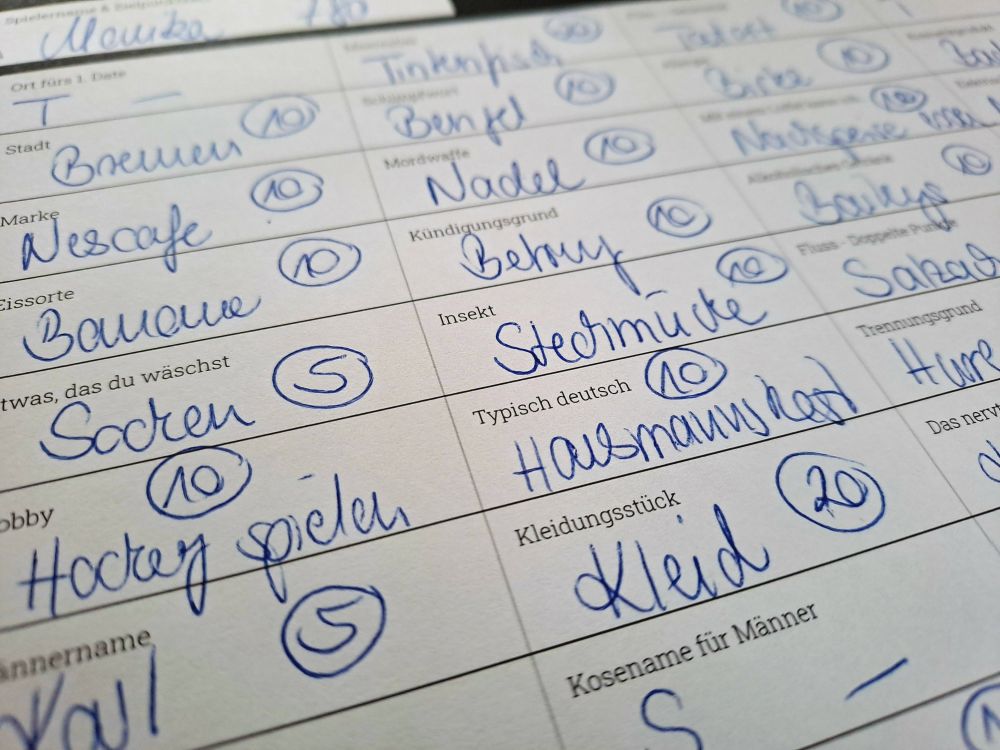 Spielername &
Monika 780
Ort fürs 1. Date
T —
Tintenfisch 20
Tatort 10
Stadt
Bremen 10
Schimpfwort
Bengel 10
Birke 10
Marke
Nescafe 10
Mordwaffe
Nadel 10
10
Eissorte
Banane 10
Kündigungsgrund
Betrug 10
Baileys 10
twas, das du wäschst
Socken 5
Insekt
Stechmücke 10
Fluss - Doppelte Punkte
Salzach
obby
Hockey spielen 10
Typisch deutsch
Hausmannskost 10
Trennungsgrund
Hure
ännername
Karl 5
Kleidungsstück
Kleid 20
Das nerv
Kosename für Männer
S —